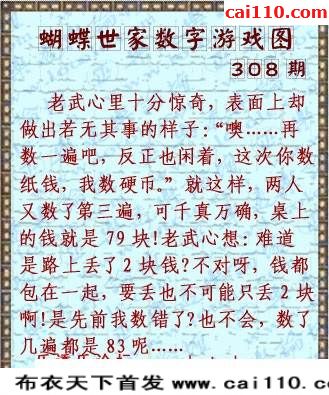 cai110.com
蝴蝶世家数字游戏图
308 期
老武心里十分惊奇，表面上却
做出若无其事的样子：“噢……再
数一遍吧，反正也闲着，这次你数
纸钱，我数硬币。”就这样，两人
又数了第三遍，可千真万确，桌上
的钱就是 79 块！老武心想：难道
是路上丢了 2 块钱？不对呀，钱都
包在一起，要丢也不可能只丢 2 块
啊！是先前我数错了？也不会，数了
几遍都是 83 呢……
布衣天下首发 www.cai110.com